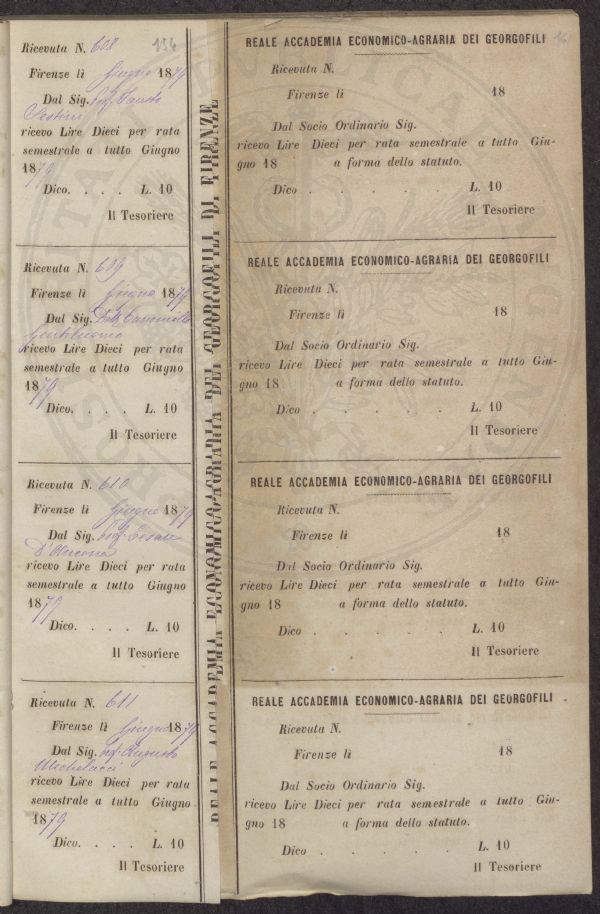 Ricevuta N. 608
154
Firenze li Giugno 1879
Dal Sig. Prof. Fausto
Sestini
ricevo Lire Dieci per rata
semestrale a tutto Giugno
1879
Dico. . . . L. 10
Il Tesoriere
Ricevuta N. 609
Firenze li Giugno 1879
Dal Sig. Dott.
Gentiluomo
ricevo Lire Dieci per rata
semestrale a tutto Giugno
1879
Dico. . . . L. 10
Il Tesoriere
Ricevuta N. 610
Firenze li Giugno 1879
Dal Sig. Prof. Cesare
D'Ancona
ricevo Lire Dieci per rata
semestrale a tutto Giugno
1879
Dico. . . . L. 10
Il Tesoriere
Ricevuta N. 611
Firenze li Giugno 1879
Dal Sig. Prof. Augusto
Michelacci
ricevo Lire Dieci per rata
semestrale a tutto Giugno
1879
Dico. . . . L. 10
Il Tesoriere
REALE ACCADEMIA ECONOMICO-AGRARIA DEI GEORGOFILI DI FIRENZE
REALE ACCADEMIA ECONOMICO-AGRARIA DEI GEORGOFILI
Ricevuta N.
Firenze li 18
Dal Socio Ordinario Sig.
ricevo Lire Dieci per rata semestrale a tutto Giu-
gno 18 a forma dello statuto.
Dico . . . . . L. 10
Il Tesoriere
REALE ACCADEMIA ECONOMICO-AGRARIA DEI GEORGOFILI
Ricevuta N.
Firenze li 18
Dal Socio Ordinario Sig.
ricevo Lire Dieci per rata semestrale a tutto Giu-
gno 18 a forma dello statuto.
Dico . . . . . L. 10
Il Tesoriere
REALE ACCADEMIA ECONOMICO-AGRARIA DEI GEORGOFILI
Ricevuta N.
Firenze li 18
Dal Socio Ordinario Sig.
ricevo Lire Dieci per rata semestrale a tutto Giu-
gno 18 a forma dello statuto.
Dico . . . . . L. 10
Il Tesoriere
REALE ACCADEMIA ECONOMICO-AGRARIA DEI GEORGOFILI
Ricevuta N.
Firenze li 18
Dal Socio Ordinario Sig.
ricevo Lire Dieci per rata semestrale a tutto Giu-
gno 18 a forma dello statuto.
Dico . . . . . L. 10
Il Tesoriere